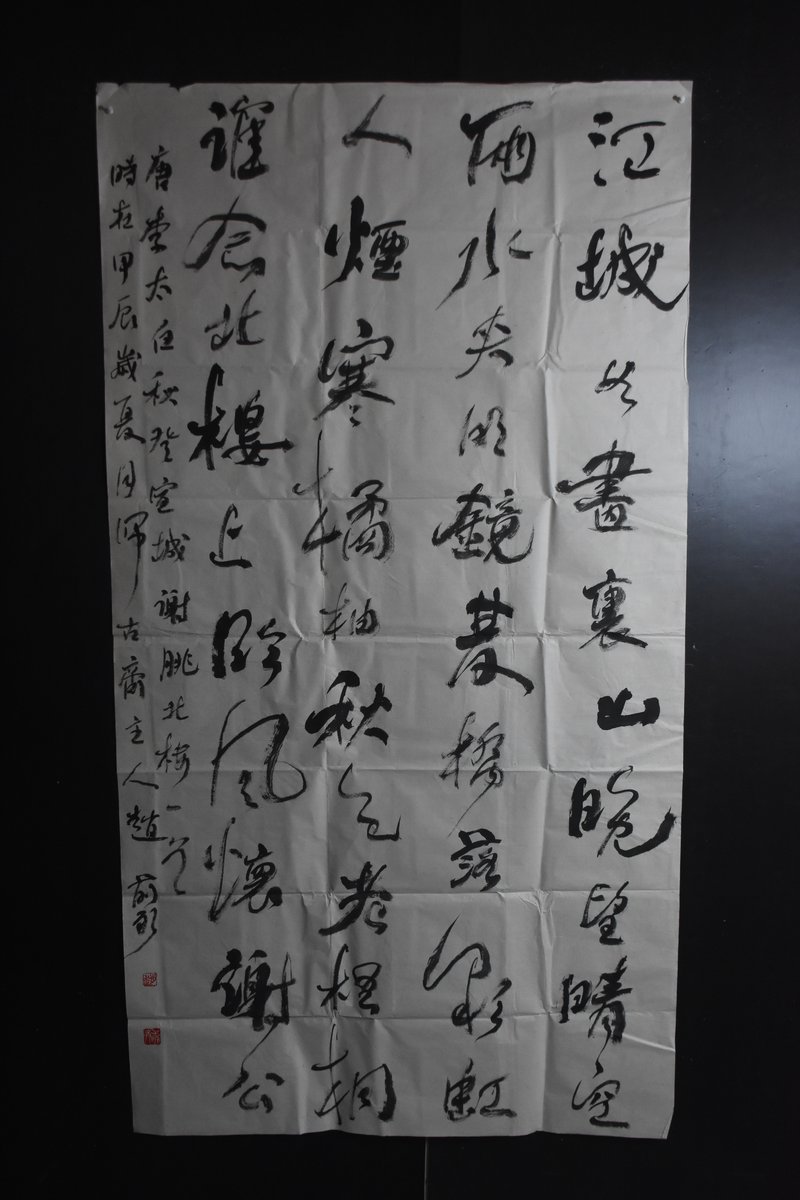 江城如畫裏山晚望晴空
兩水夾明鏡雙橋落彩虹
人煙寒橘柚秋色老梧桐
誰念北樓上臨風懷謝公
唐李太白秋登宣城謝朓北樓一首
時在甲辰歲夏月 古齋主人趙